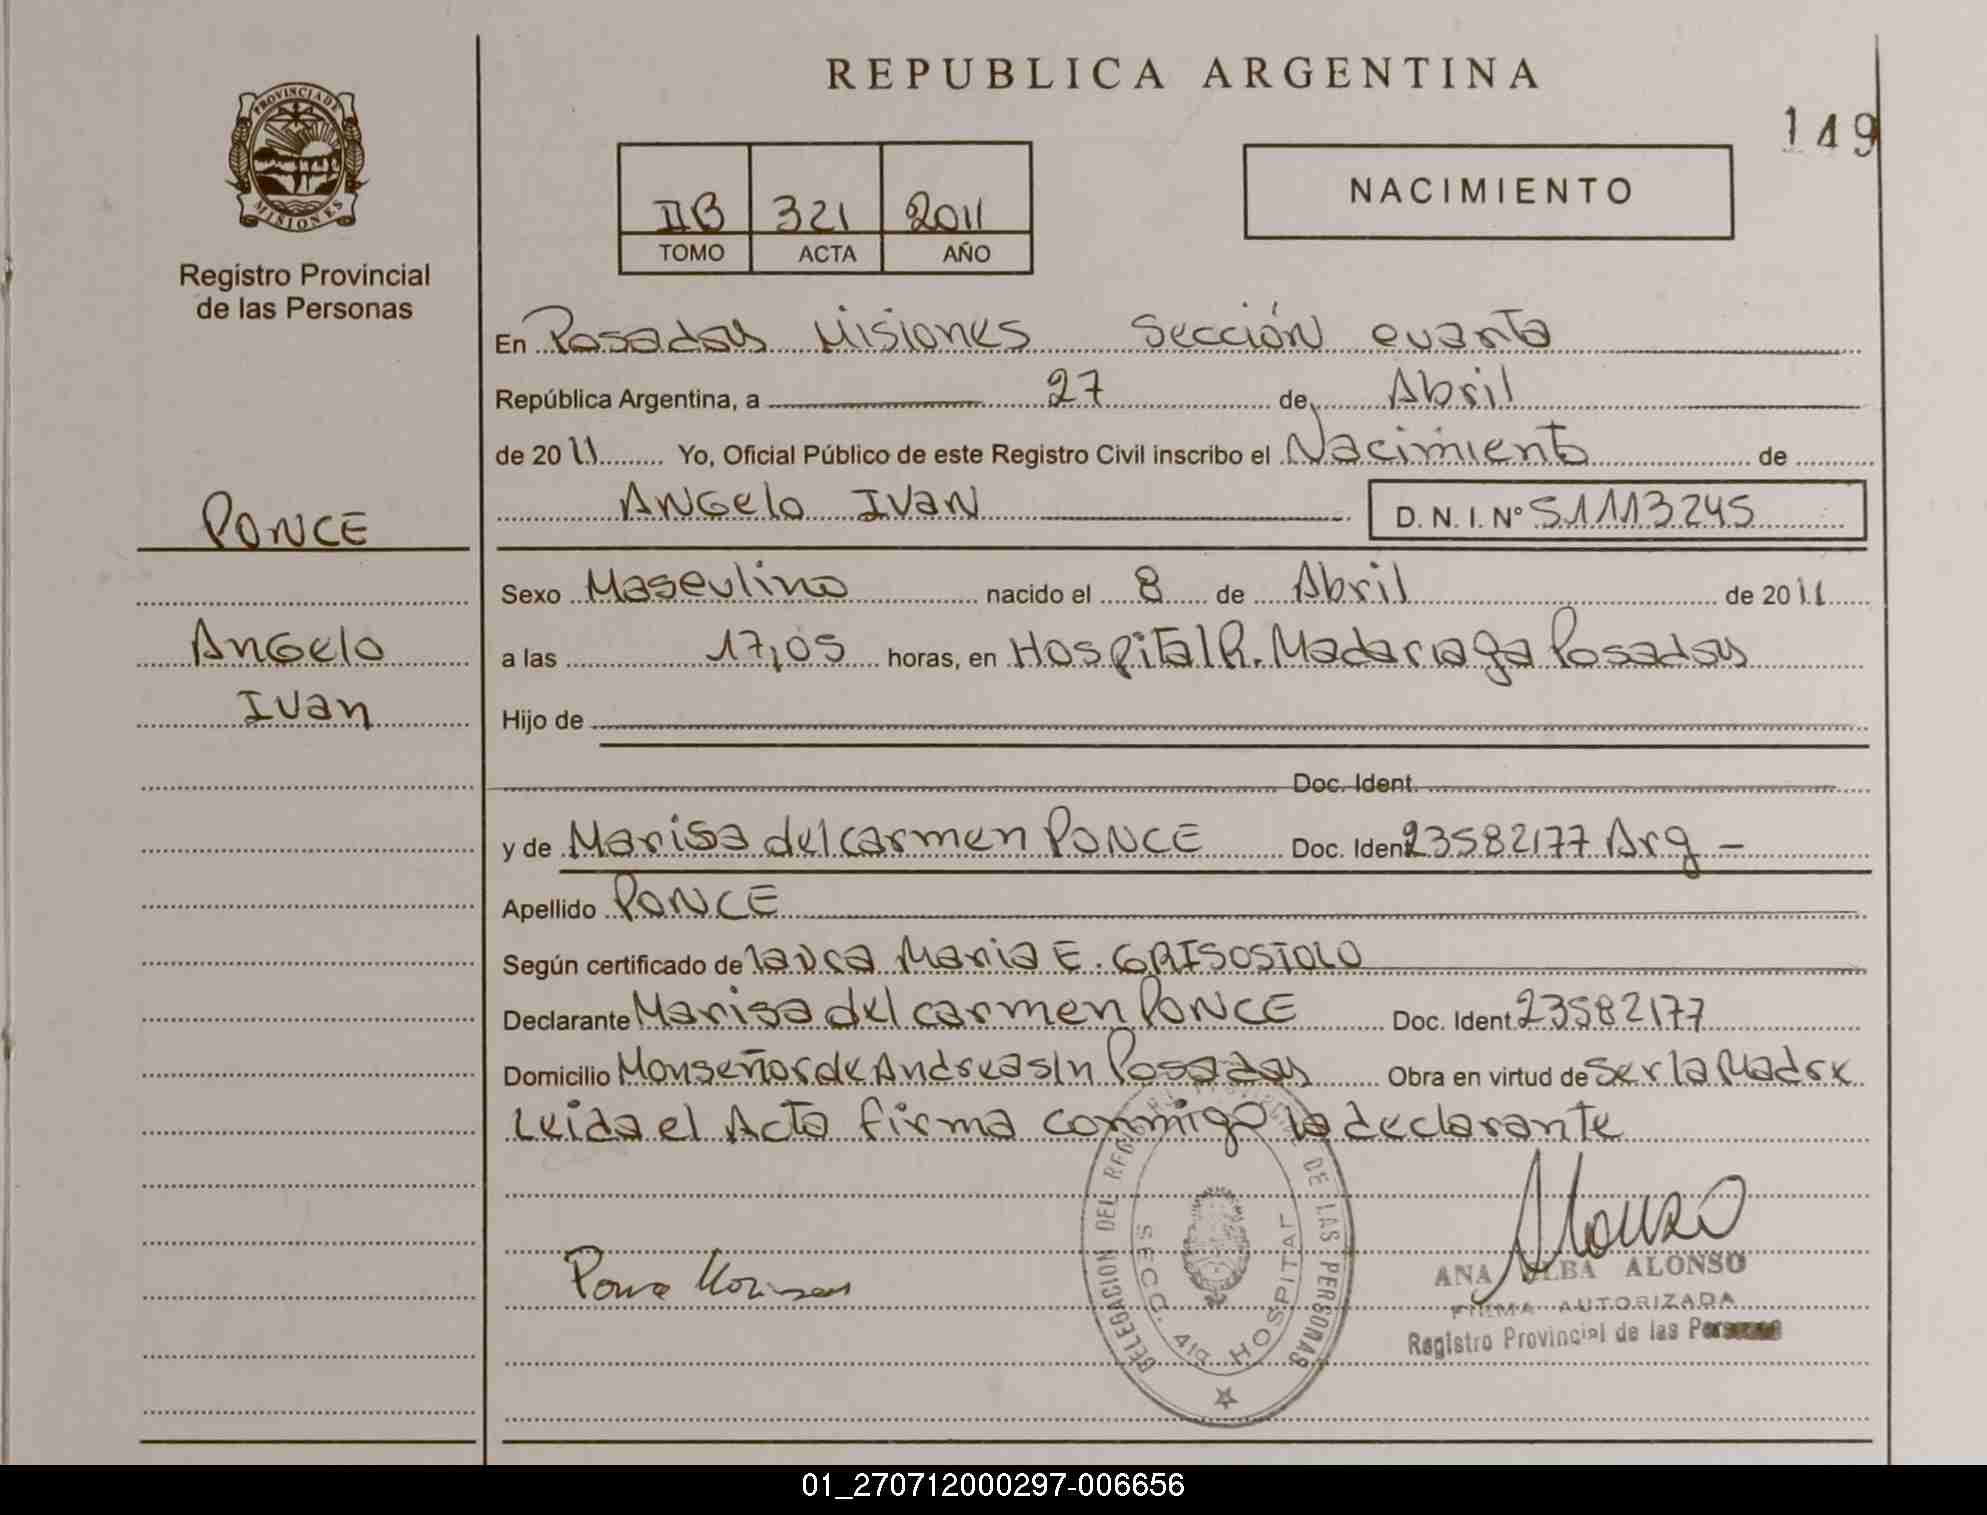 REPUBLICA ARGENTINA
149
PROVINCIA DE
MISIONES
Registro Provincial
de las Personas
IIB 321 2011
TOMO ACTA AÑO
NACIMIENTO
En Posadas Misiones Sección cuarta
República Argentina, a 27 de Abril
de 2011 Yo, Oficial Público de este Registro Civil inscribo el Nacimiento de
ANGelo IVAN D.N.I. Nº 51113245
PONCE
Angelo
Ivan
Sexo Masculino nacido el 8 de Abril de 2011
a las 17,05 horas, en Hospital R. Madariaga Posadas
Hijo de
Doc. Ident.
y de Marisa del carmen PONCE Doc. Ident 23582177 Arg -
Apellido PONCE
Según certificado de laura Maria E. GRISOSTOLO
Declarante Marisa del carmen PONCE Doc. Ident 23582177
Domicilio Monseñor de Andrea s/n Posadas Obra en virtud de ser la Madre
Leida el Acta firma conmigo la declarante
Ponce Marisa
DELEGACION DEL REG. PROVINCIAL DE LAS PERSONAS
SECC. 4ta HOSPITAL
Alonso
ANA ALBA ALONSO
FIRMA AUTORIZADA
Registro Provincial de las Personas
01_270712000297-006656